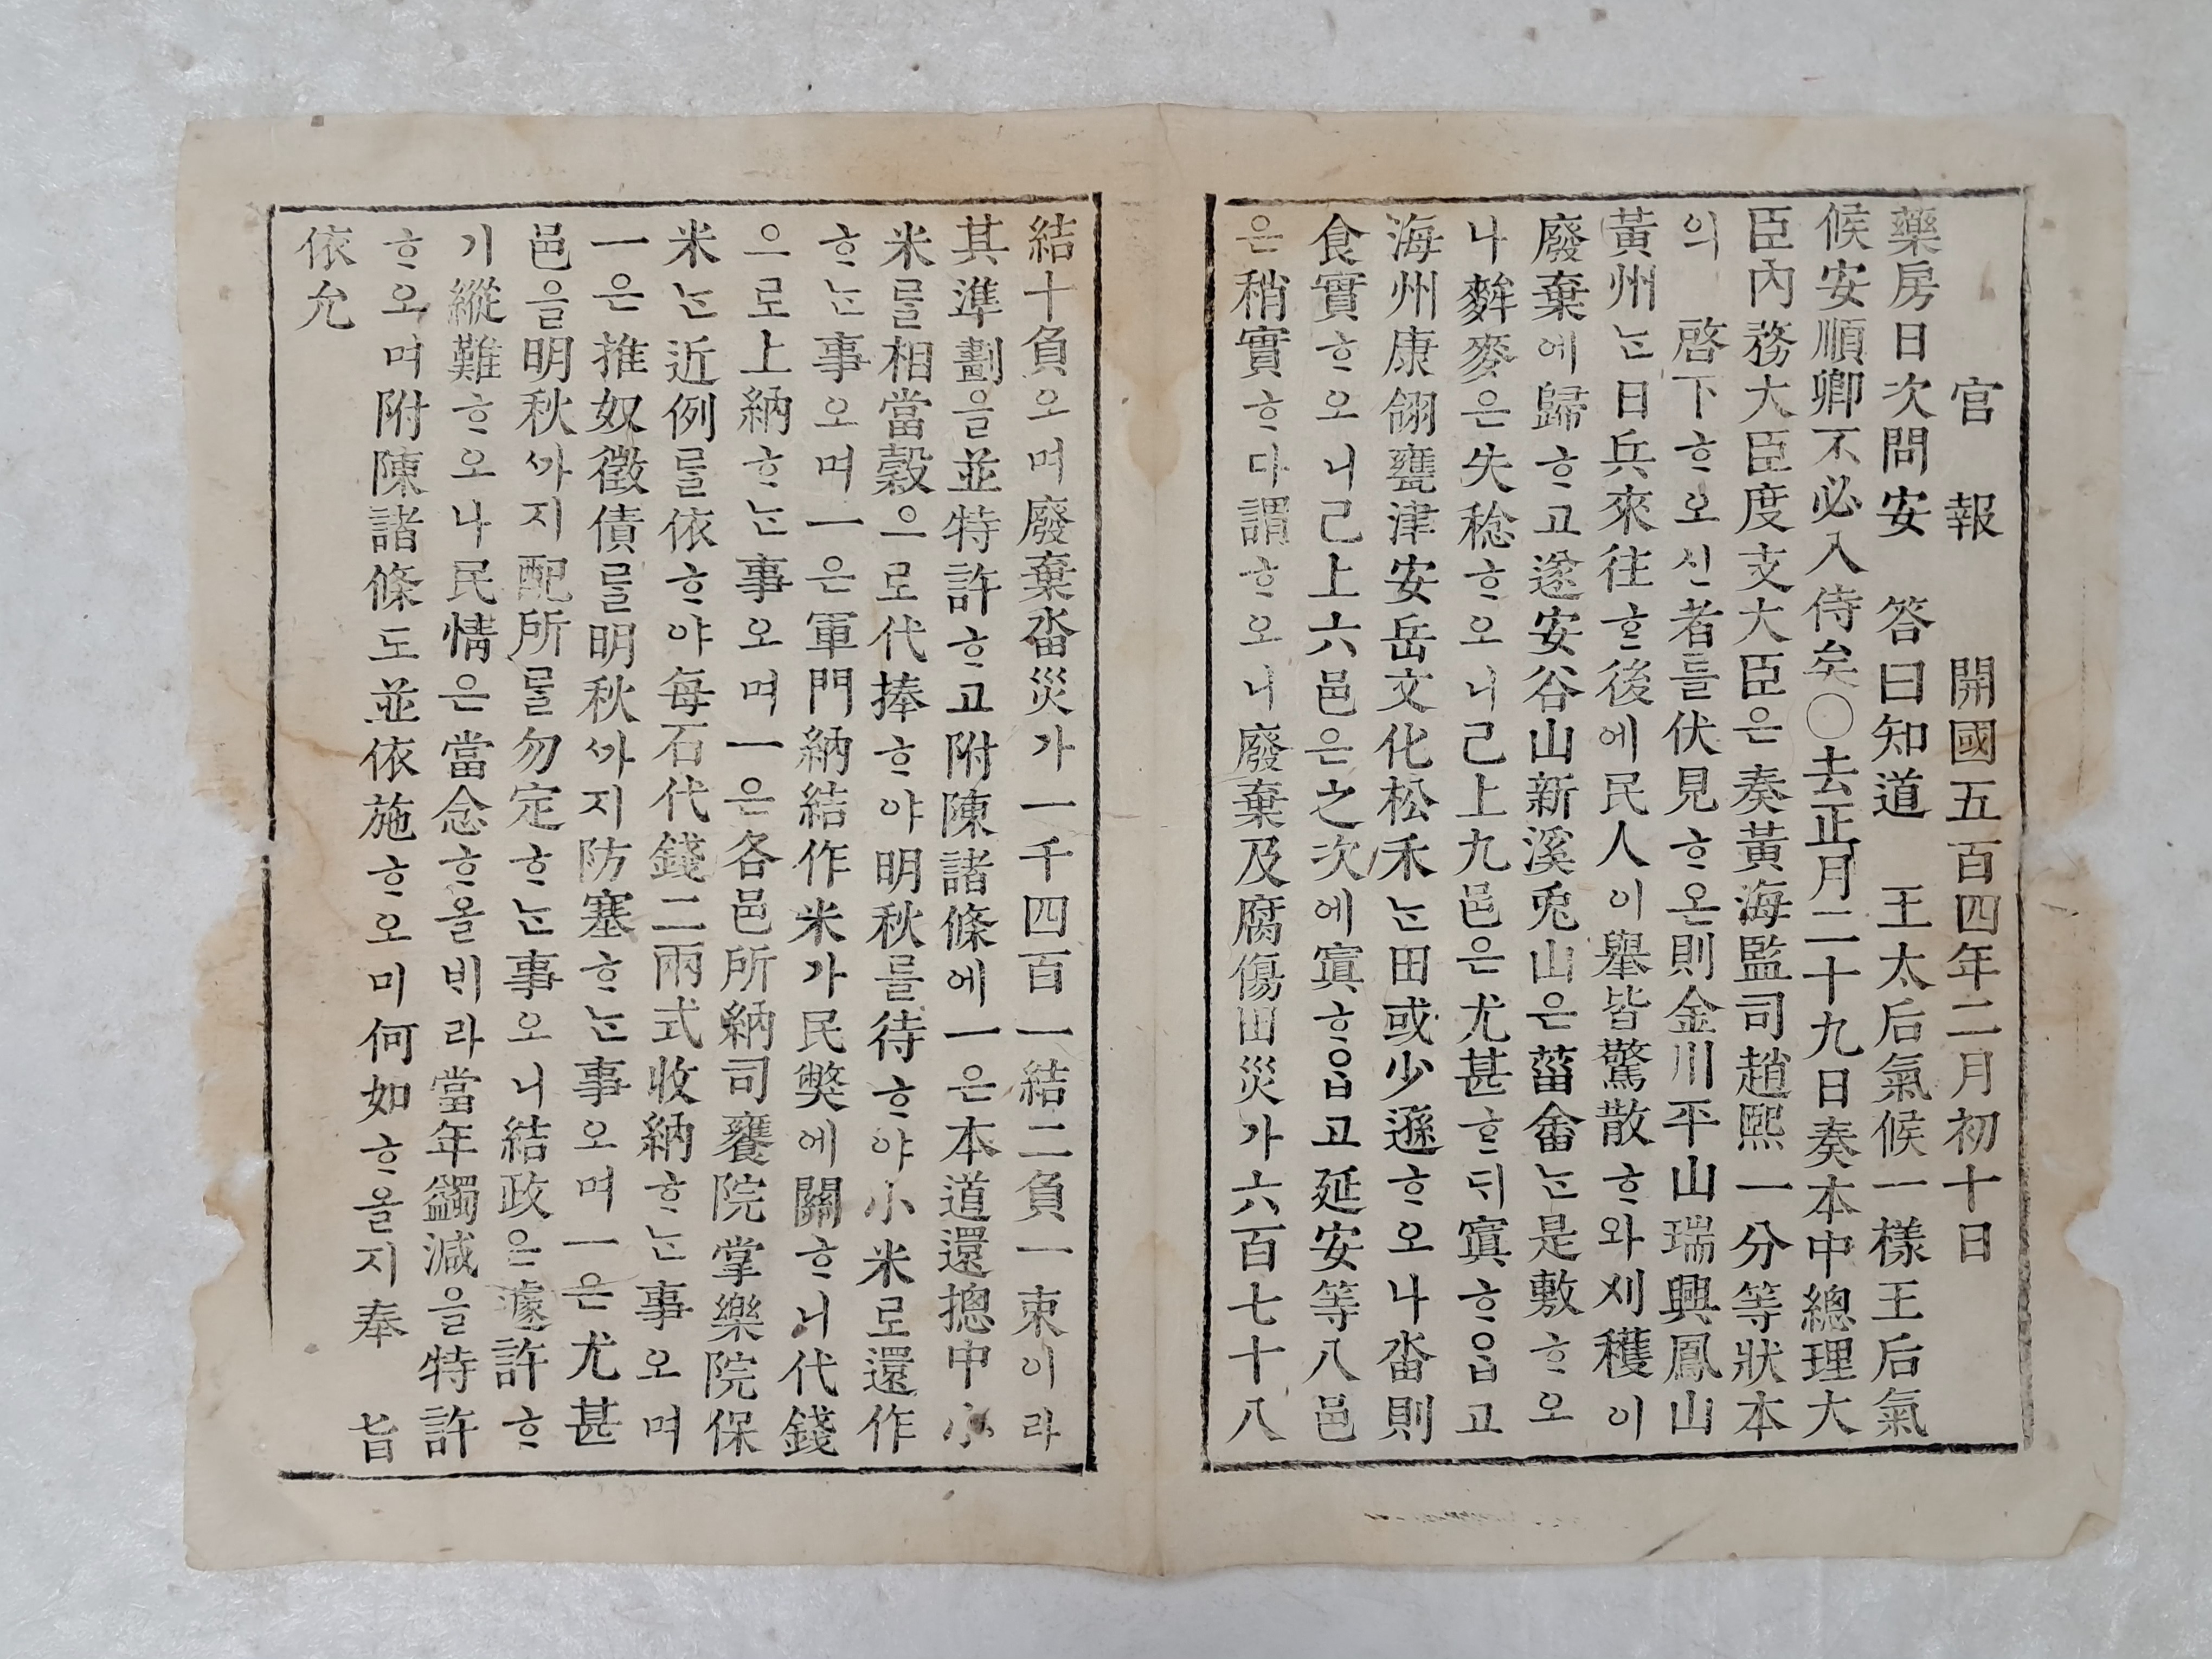 官報 開國五百四年二月初十日
藥房日次問安 答曰知道 王太后氣候一樣王后氣
候安順卿不必入侍矣○去正月二十九日奏本中總理大
臣內務大臣度支大臣은奏黃海監司趙熙一分等狀本
의 啓下ᄒᆞ오신者를伏見ᄒᆞ온則金川平山瑞興鳳山
黃州ᄂᆞᆫ日兵來往ᄒᆞᆫ後에民人이擧皆驚散ᄒᆞ와刈穫이
廢棄에歸ᄒᆞ고遂安谷山新溪兎山은菑畬ᄂᆞᆫ是敷ᄒᆞ오
나麰麥은失稔ᄒᆞ오니己上九邑은尤甚ᄒᆞᆫ듸寘ᄒᆞ옵고
海州康翎甕津安岳文化松禾ᄂᆞᆫ田或少遜ᄒᆞ오나畓則
食實ᄒᆞ오니己上六邑은之次에寘ᄒᆞ옵고延安等八邑
은稍實ᄒᆞ다謂ᄒᆞ오니廢棄及腐傷田災가六百七十八
結十負오며廢棄畓災가一千四百一結二負一束이라
其準劃을並特許ᄒᆞ고附陳諸條에一은本道還摠中小
米를相當穀으로代捧ᄒᆞ야明秋를待ᄒᆞ야小米로還作
ᄒᆞᄂᆞᆫ事오며一은軍門納結作米가民弊에關ᄒᆞ니代錢
으로上納ᄒᆞᄂᆞᆫ事오며一은各邑所納司饔院掌樂院保
米ᄂᆞᆫ近例를依ᄒᆞ야每石代錢二兩式收納ᄒᆞᄂᆞᆫ事오며
一은推奴徵債를明秋ᄭᆞ지防塞ᄒᆞᄂᆞᆫ事오며一은尤甚
邑을明秋ᄭᆞ지配所를勿定ᄒᆞᄂᆞᆫ事오니結政은遽許ᄒᆞ
기縱難ᄒᆞ오나民情은當念ᄒᆞ올비라當年蠲減을特許
ᄒᆞ오며附陳諸條도並依施ᄒᆞ오미何如ᄒᆞ올지奉 旨
依允